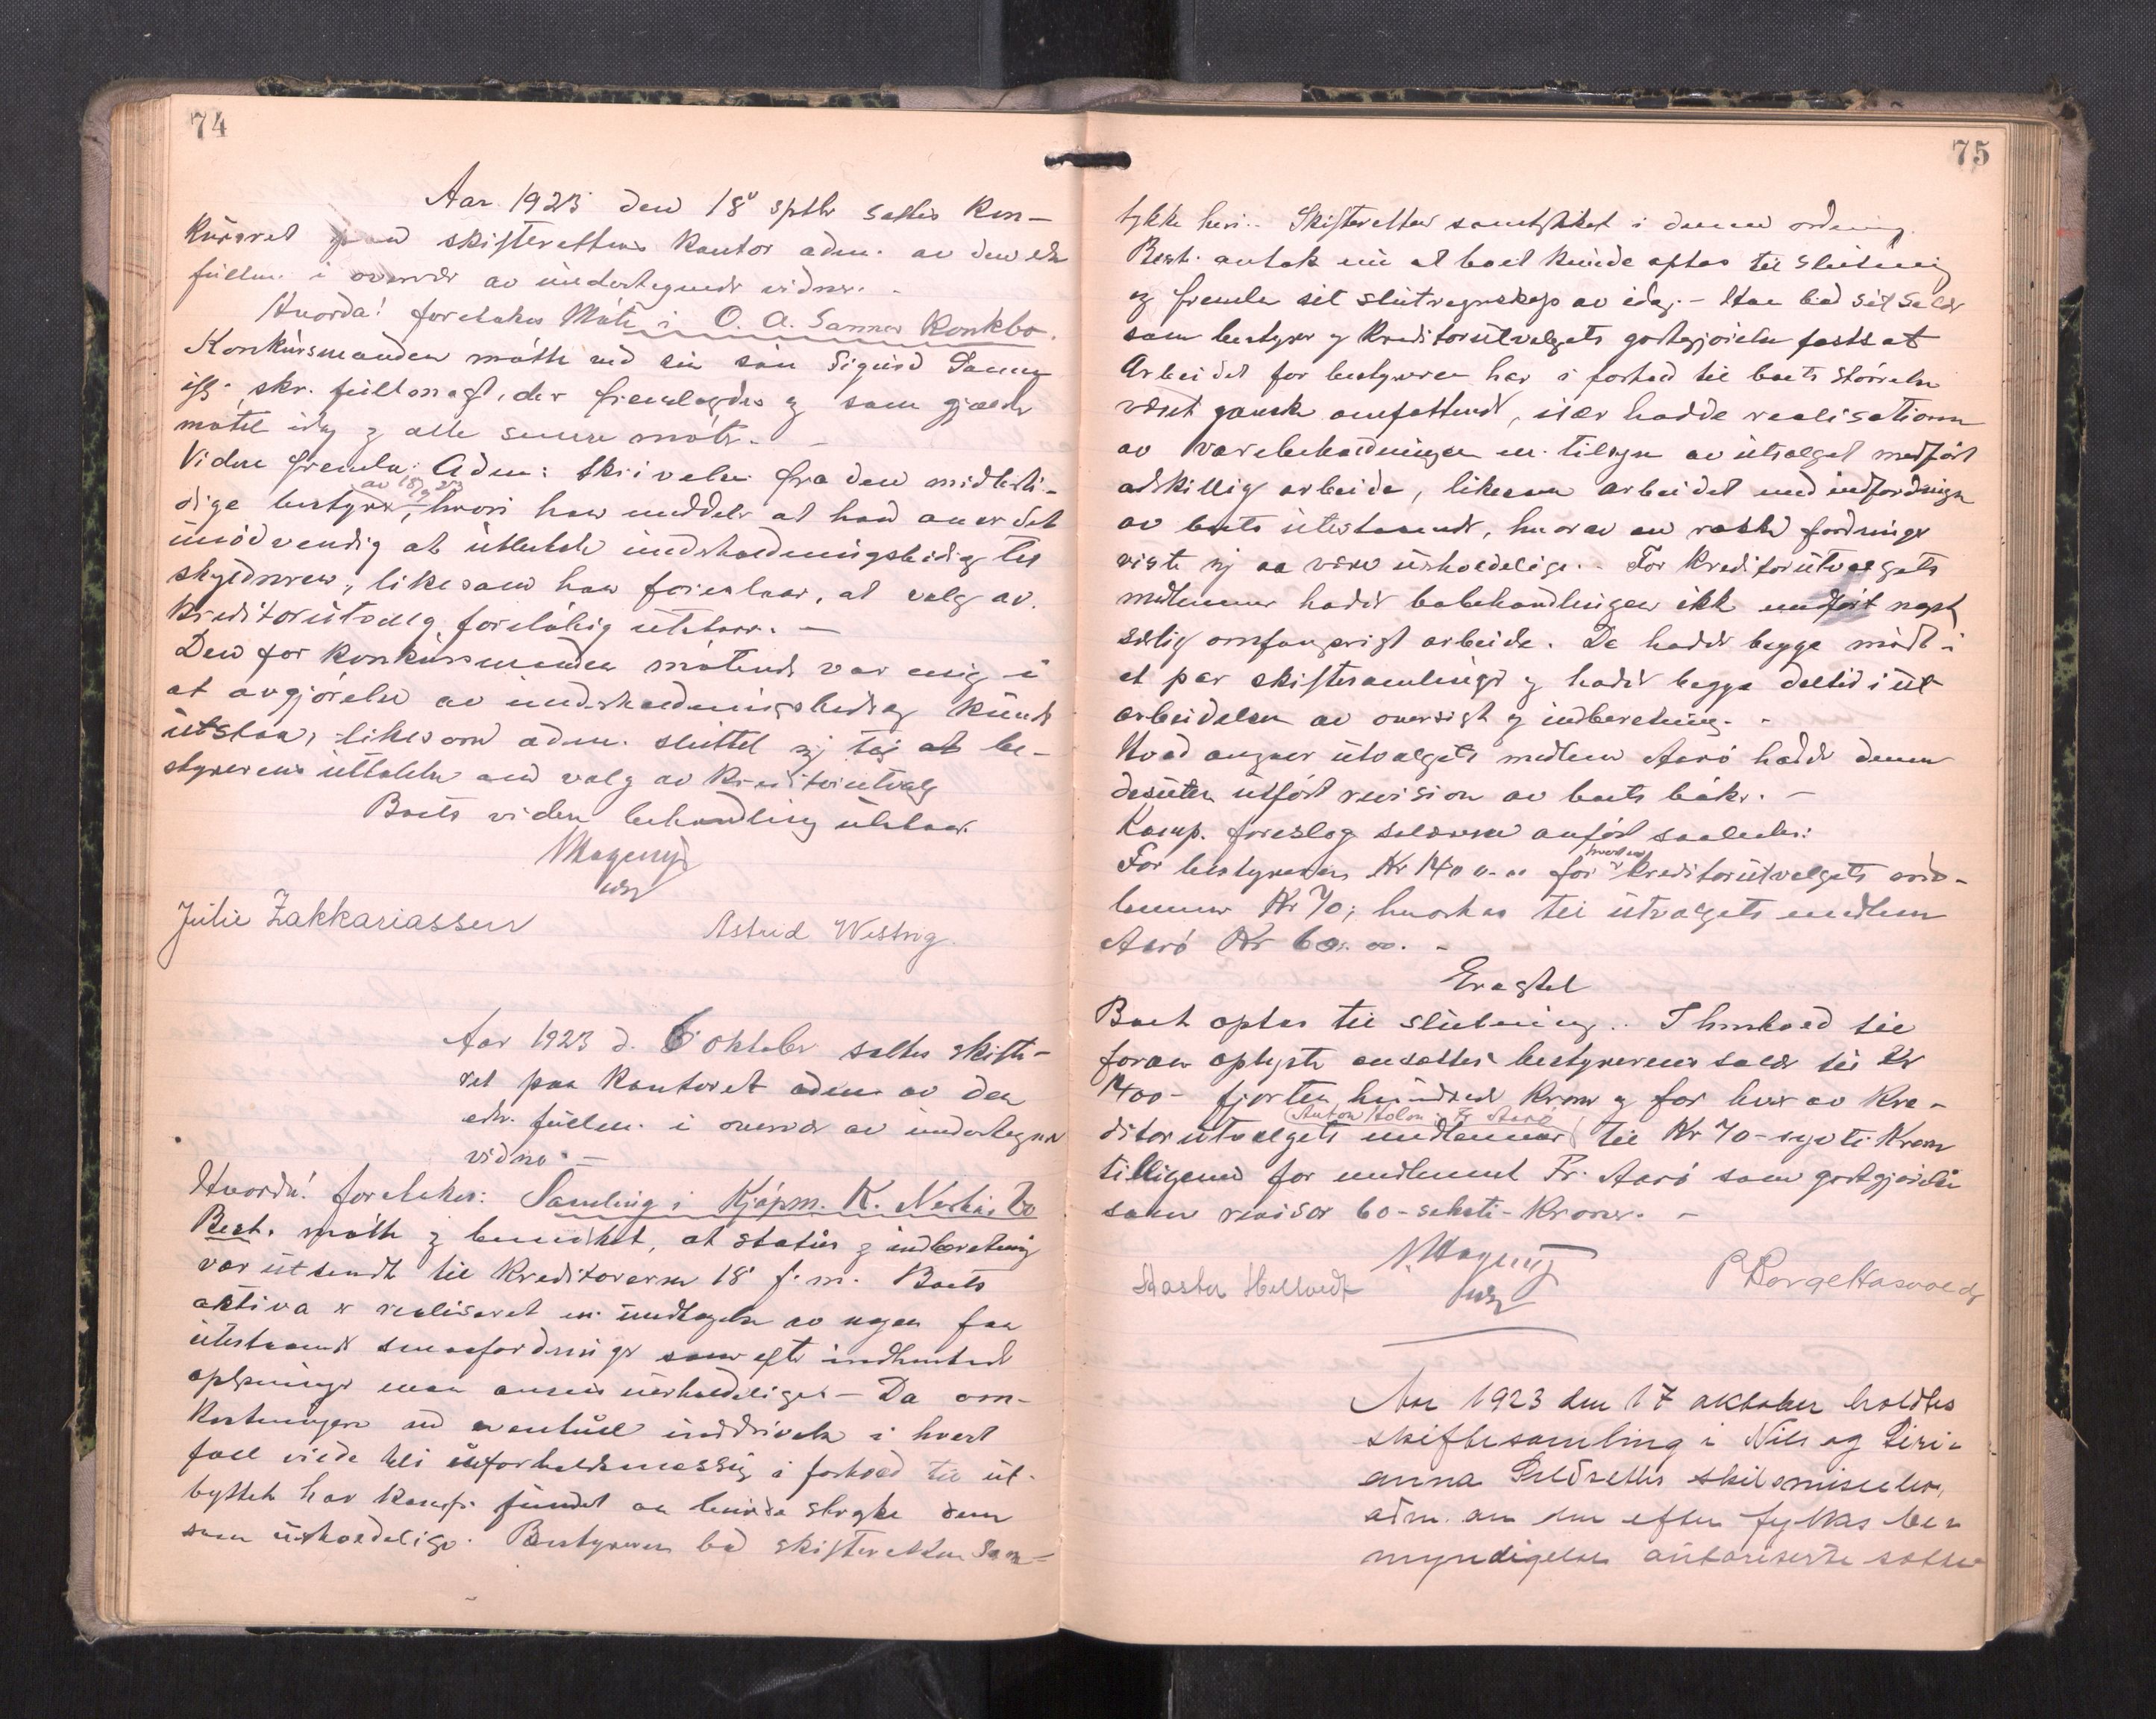 74
Aar 1923 den 18' sptbr sattes kon-
kursret paa skifterettens kontor adm. av den edsv
fullm. i overvær av undertegnede vidner. -
Hvorda! foretokes Møte i O. A. Sannes Konkbo.
Konkursmanden møtte ved sin søn Sigurd Sannes
iflg. skr. fuldmagt, der fremlagdes og som gjælder
møtet idag og alle senere møter. -
Videre fremla: Adm: skrivelse fra den midlerti-
av 18/9 23
dige bestyrer, hvori han meddeler at han anser det
unødvendig at utlevere underholdningsbidrag til
skyldneren, likesom han foreslaar, at valg av
kreditorutvalg foreløbig utstaar. -
Den for konkursmanden møtende var enig i
at avgjørelse av underholdningsbidrag kunde
utstaa, likesom adm. sluttet sig til at be-
styrerens uttalelse om valg av kreditorutvalg
Boets videre behandling utstaar.
Magerøy
Julie Zakkariassen Astrid Westvig.
Aar 1923 d. 6 oktober sattes skifte-
ret paa kontoret adm av den
edsv. fullm. i overvær av undertegnede
vidne. -
Hvorda! foretokes: Samling i Kjøpm. K. Nerbøs bo
Best. møtte og bemerket, at status og indberetning
var utsendt til kreditorerne 18' f.m. Boets
aktiva er realiseret m. undtagelse av nogen faa
utestaaende smaafordringer som efter indhentede
oplysninger man anser uerholdelige. - Da om-
kostningene ved eventuell inddrivelse i hvert
fall vilde bli uforholdsmessig i forhold til ut-
byttet har komp. fundet aa burde stryke dem
som uerholdelige. Bestyreren bad skifteretten sam-
75
tykke heri. - Skifteretten samtykket i denne ordning.
Best. antok nu at boet kunde optas til slutning
og fremla sit slutregnskap av idag. - Han bad sit salær
som bestyrer og kreditorutvalgets godtgjørelse fastsat
Arbeidet for bestyreren har i forhold til boets størrelse
været ganske omfattende, især hadde realisationen
av varebeholdningen m. tilsyn av utvalget medført
adskillig arbeide, likesom arbeidet med indfordringen
av boets utestaaende, hvorav en række fordringer
viste sig aa være uerholdelige. - For kreditorutvalgets
medlemmer hadde bobehandlingen ikke medført noget
særlig omfangsrigt arbeide. De hadde begge møtt i
et par skiftesamlinger og hadde begge deltid i ut-
arbeidelsen av oversigt og indberetning. -
Hvad angaar utvalgets medlem Aarø hadde denne
desuten utført revision av boets bøker. -
Komp. foreslog salærene anført saaledes:
hvert av
For bestyreren Kr 1400.00 for kreditorutvalgets med-
lemmer Kr 70; hvorhos til utvalgets medlem
Aarø Kr 60.00. -
Eragtet
Boet optas til slutning. - I henhold til
foran oplyste ansattes bestyrerens salær til Kr
1400 - fjorten hundrede kroner og for hver av kre-
(Anton Holm - Fr Aarø)
ditorutvalgets medlemmer til Kr 70 - sytti kroner
tillikemed for medlemmet Fr. Aarø som godtgjørelse
som revisor 60 - seksti - kroner. -
N. Magerøy
Aar 1923 den 17 oktober holdtes
skiftesamling i Nils og Siri-
anna skilsmissebo,
adm. av den efter fylkes be-
myndigelse autoriserte